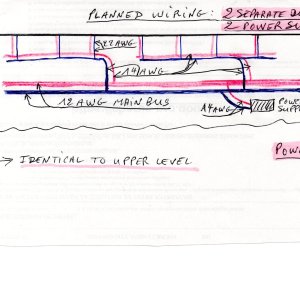 PLANNED WIRING: 2 SEPARATE
2 POWER SU
22 AWG
14 AWG
12 AWG MAIN BUS
14 AWG
POWE
SUPP
→ IDENTICAL TO UPPER LEVEL
POW